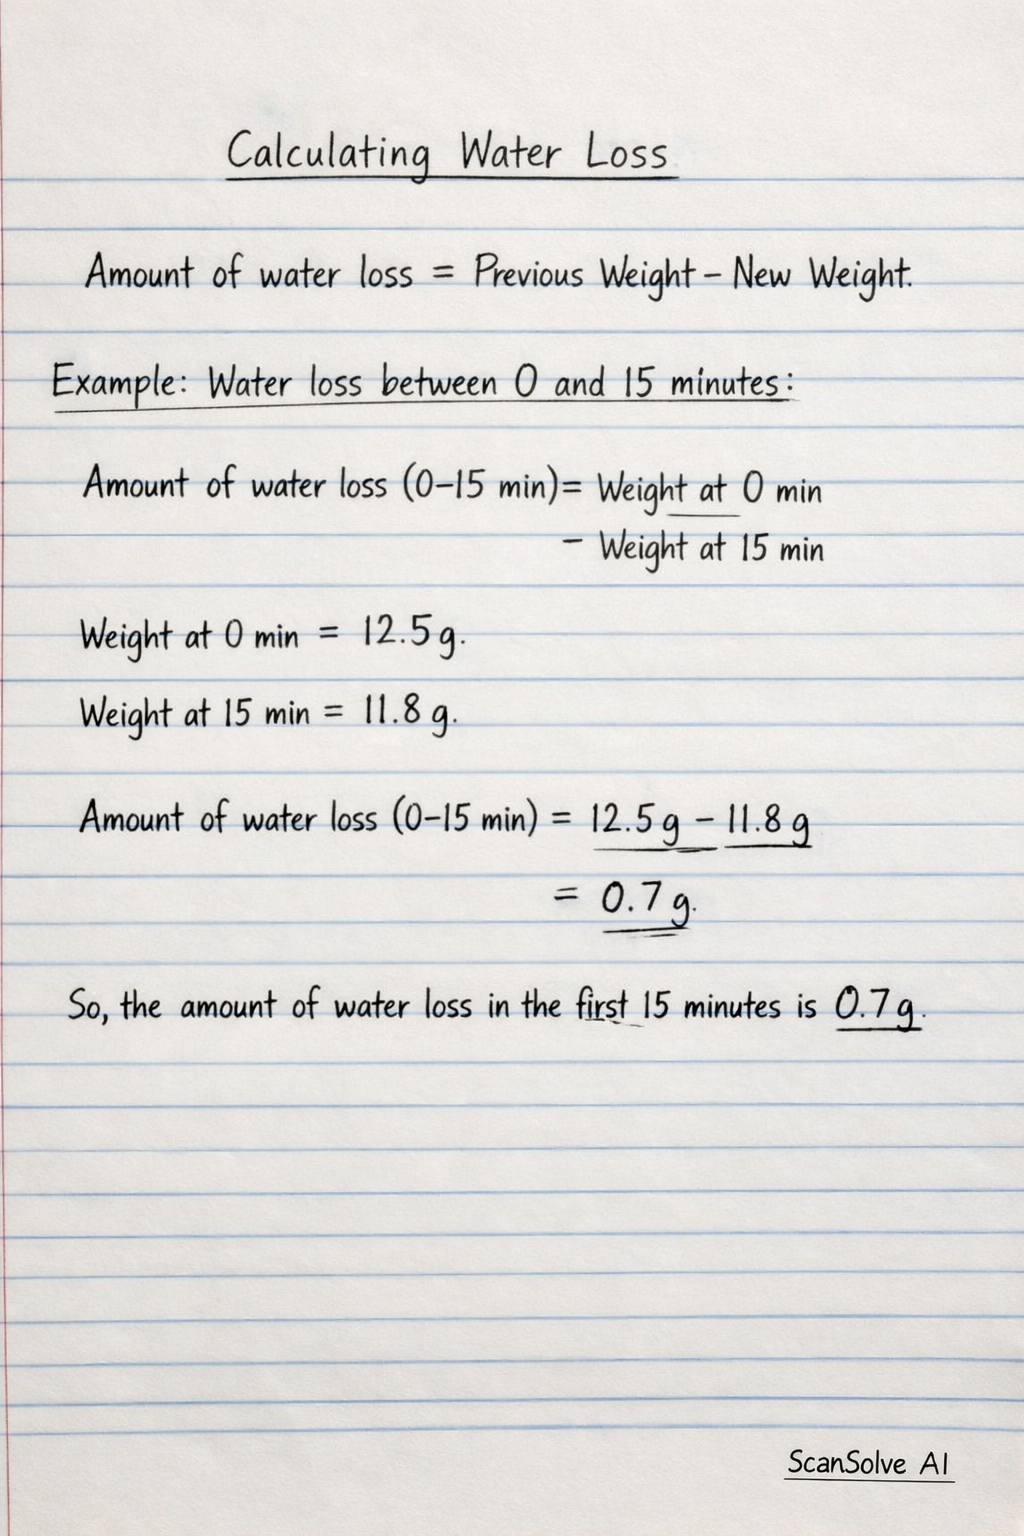 Calculating Water Loss
Amount of water loss = Previous Weight - New Weight.
Example: Water loss between 0 and 15 minutes:
Amount of water loss (0-15 min)= Weight at 0 min
- Weight at 15 min
Weight at 0 min = 12.5 g.
Weight at 15 min = 11.8 g.
Amount of water loss (0-15 min) = 12.5 g - 11.8 g
= 0.7 g.
So, the amount of water loss in the first 15 minutes is 0.7 g.
ScanSolve AI